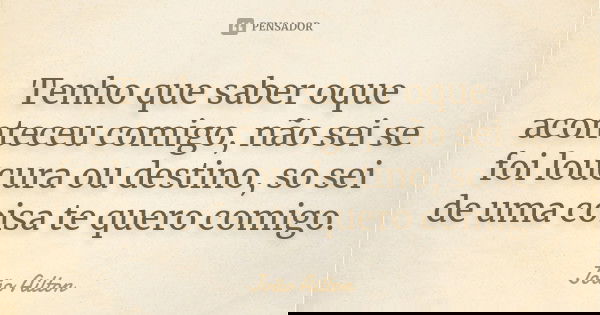 PENSADOR
Tenho que saber oque
aconteceu comigo, não sei se
foi loucura ou destino, so sei
de uma coisa te quero comigo.
João Ailton